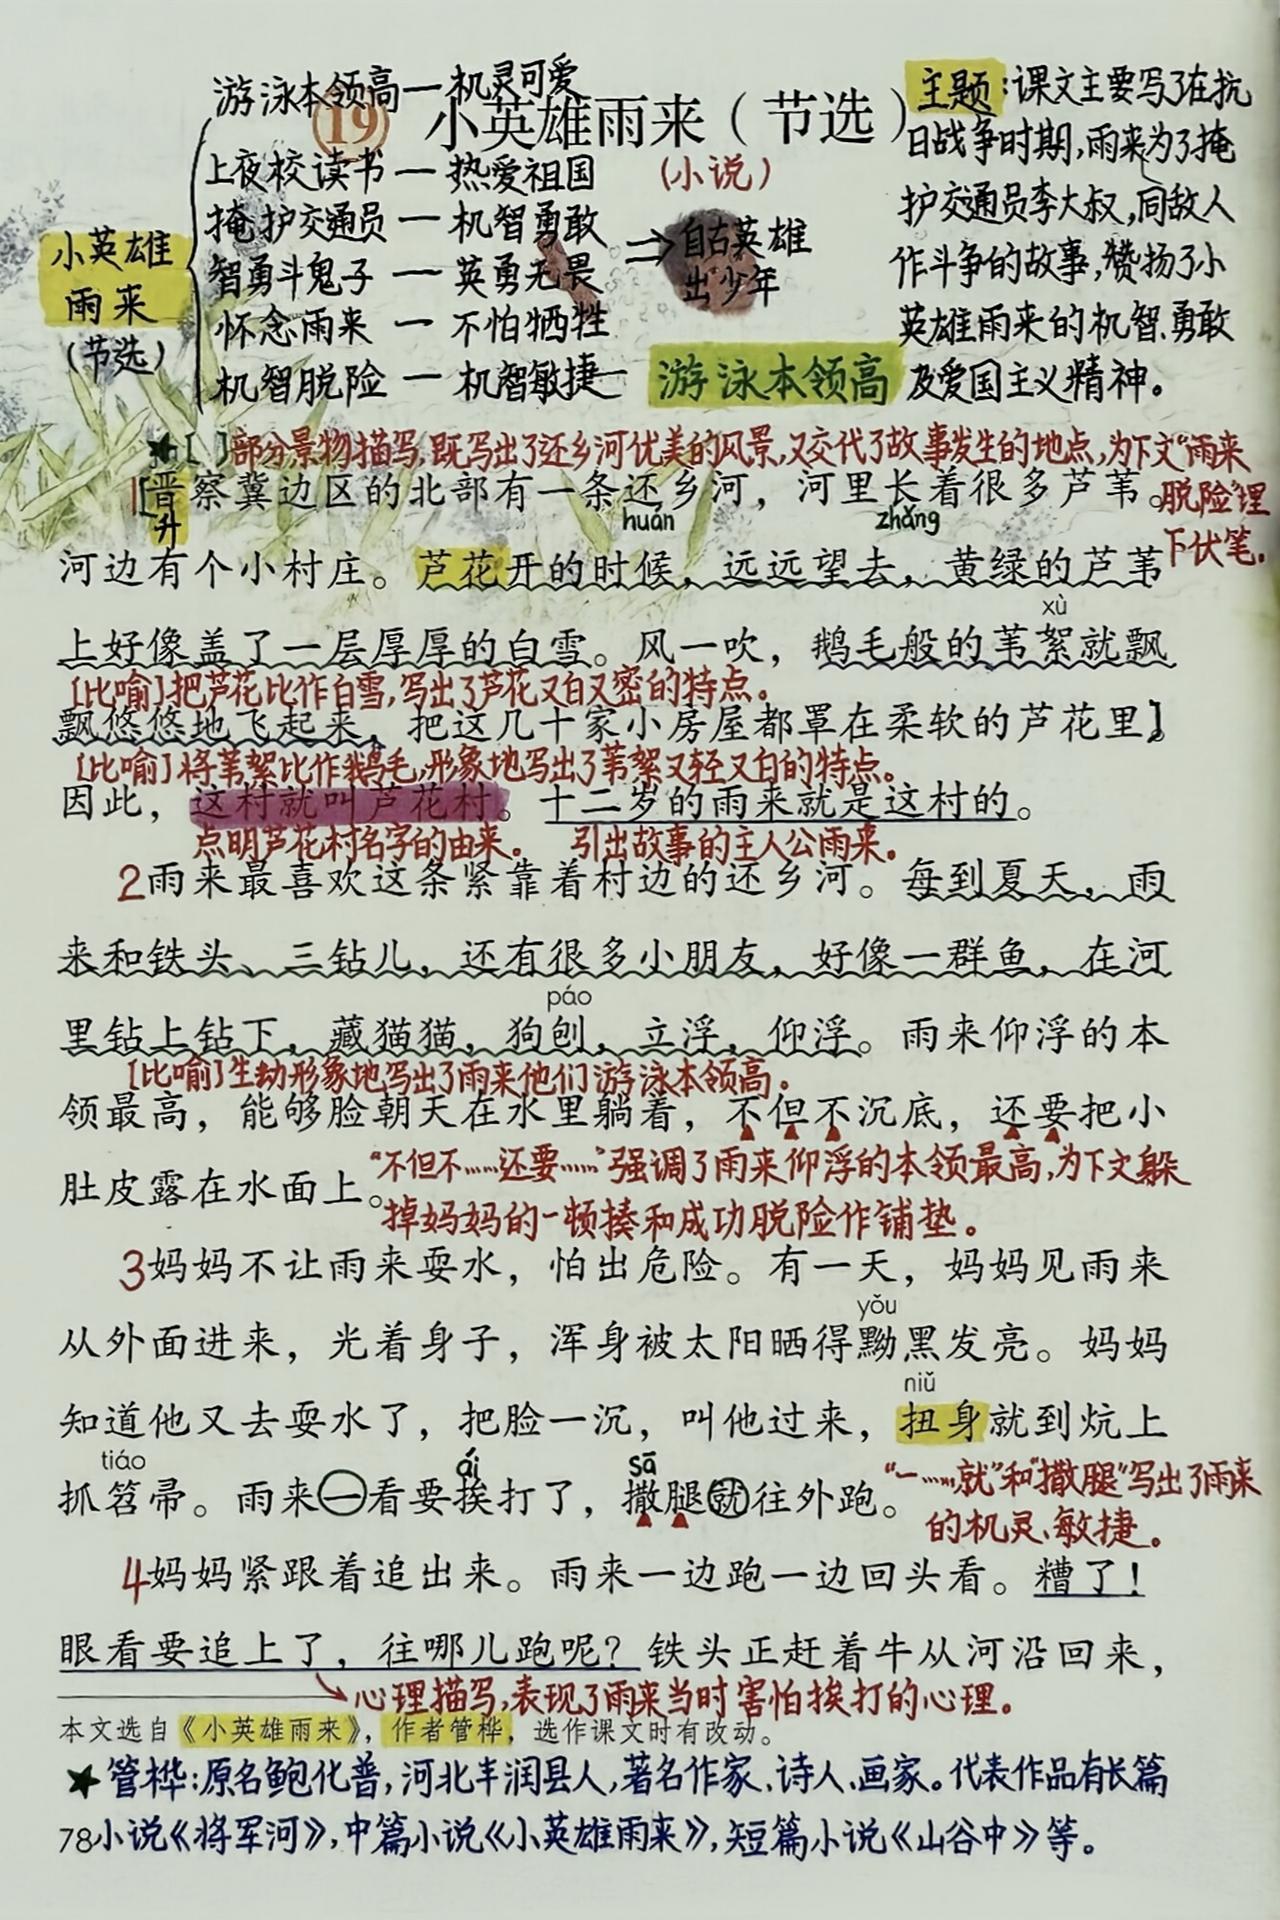 游泳本领高—机灵可爱
19 小英雄雨来（节选）
上夜校读书—热爱祖国
（小说）
掩护交通员—机智勇敢
智勇斗鬼子—英勇无畏
怀念雨来—不怕牺牲
机智脱险—机智敏捷
小英雄
雨来
（节选）
⇒自古英雄
出少年
游泳本领高
主题：课文主要写了在抗
日战争时期，雨来为了掩
护交通员李大叔，同敌人
作斗争的故事，赞扬了小
英雄雨来的机智、勇敢
及爱国主义精神。
★[ ]部分景物描写，既写出了还乡河优美的风景，又交代了故事发生的地点，为下文“雨来
脱险”埋
下伏笔。
1[晋察冀边区的北部有一条还乡河，河里长着很多芦苇。
升
huán
zhǎng
河边有个小村庄。芦花开的时候，远远望去，黄绿的芦苇
xù
上好像盖了一层厚厚的白雪。风一吹，鹅毛般的苇絮就飘
[比喻]把芦花比作白雪，写出了芦花又白又密的特点。
飘悠悠地飞起来，把这几十家小房屋都罩在柔软的芦花里]。
[比喻]将苇絮比作鹅毛，形象地写出了苇絮又轻又白的特点。
因此，这村就叫芦花村。十二岁的雨来就是这村的。
点明芦花村名字的由来。 引出故事的主人公雨来。
2雨来最喜欢这条紧靠着村边的还乡河。每到夏天，雨
来和铁头、三钻儿，还有很多小朋友，好像一群鱼，在河
páo
里钻上钻下，藏猫猫，狗刨，立浮，仰浮。雨来仰浮的本
[比喻]生动形象地写出了雨来他们游泳本领高。
领最高，能够脸朝天在水里躺着，不但不沉底，还要把小
肚皮露在水面上。
“不但不……还要……”强调了雨来仰浮的本领最高，为下文躲
掉妈妈的一顿揍和成功脱险作铺垫。
3妈妈不让雨来耍水，怕出危险。有一天，妈妈见雨来
yǒu
从外面进来，光着身子，浑身被太阳晒得黝黑发亮。妈妈
niǔ
知道他又去耍水了，把脸一沉，叫他过来，扭身就到炕上
tiáo
ái
sā
抓笤帚。雨来一看要挨打了，撒腿就往外跑。
“一……就”和“撒腿”写出了雨来
的机灵、敏捷。
4妈妈紧跟着追出来。雨来一边跑一边回头看。糟了！
眼看要追上了，往哪儿跑呢？铁头正赶着牛从河沿回来，
心理描写，表现了雨来当时害怕挨打的心理。
本文选自《小英雄雨来》，作者管桦，选作课文时有改动。
★管桦：原名鲍化普，河北丰润县人，著名作家、诗人、画家。代表作品有长篇
78小说《将军河》，中篇小说《小英雄雨来》，短篇小说《山谷中》等。